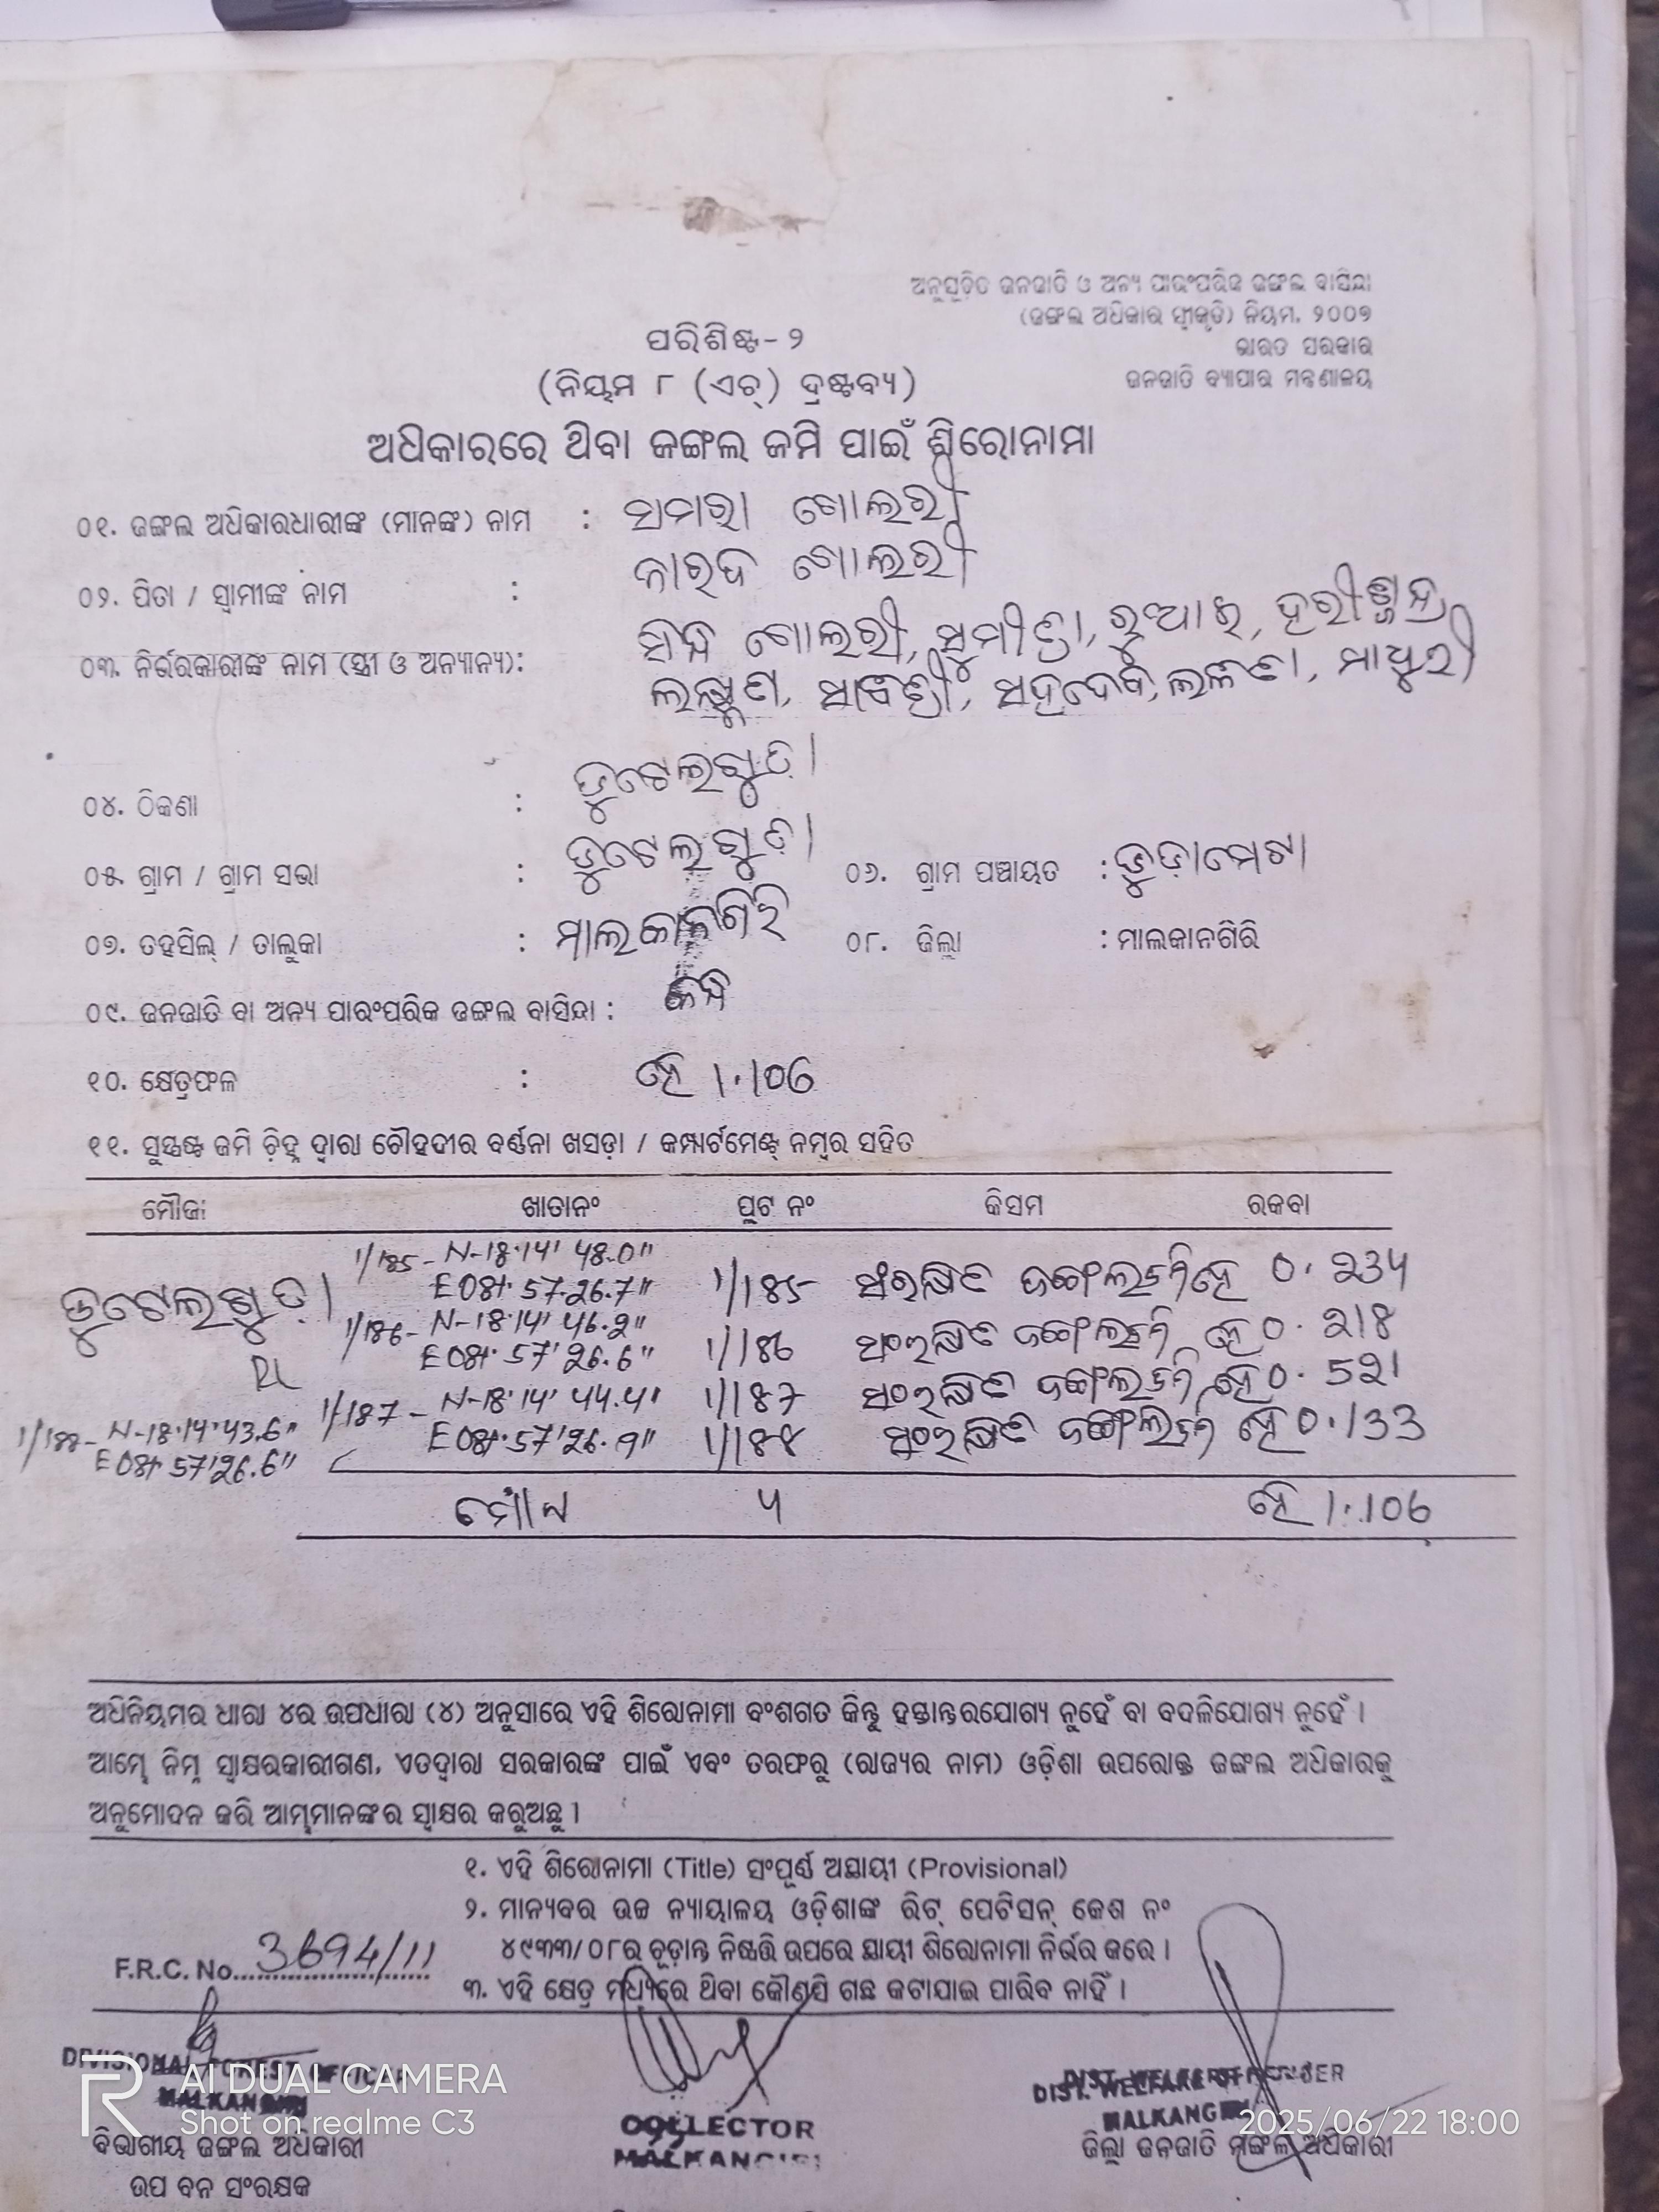 ଅନୁସୂଚିତ ଜନଜାତି ଓ ଅନ୍ୟ ପାରଂପରିକ ଜଙ୍ଗଲ ବାସିନ୍ଦା
(ଜଙ୍ଗଲ ଅଧିକାର ସ୍ୱୀକୃତି) ନିୟମ, ୨୦୦୭
ଭାରତ ସରକାର
ଜନଜାତି ବ୍ୟାପାର ମନ୍ତ୍ରଣାଳୟ
ପରିଶିଷ୍ଟ-୨
(ନିୟମ ୮ (ଏଚ୍) ଦ୍ରଷ୍ଟବ୍ୟ)
ଅଧିକାରରେ ଥିବା ଜଙ୍ଗଲ ଜମି ପାଇଁ ଶିରୋନାମା
୦୧. ଜଙ୍ଗଲ ଅଧିକାରଧାରୀଙ୍କ (ମାନଙ୍କ) ନାମ : ସମାରା ଗୋଲରୀ
୦୨. ପିତା / ସ୍ୱାମୀଙ୍କ ନାମ : ନାରଦ ଗୋଲରୀ
୦୩. ନିର୍ଭରକାରୀଙ୍କ ନାମ (ସ୍ତ୍ରୀ ଓ ଅନ୍ୟାନ୍ୟ): ଗୋଲରୀ, ହରୀଶ୍ଚନ୍ଦ୍ର
ଲକ୍ଷ୍ମଣ, ସାବିତ୍ରୀ, ସହଦେବ, ଲଳିତା, ମାଧୁରୀ
୦୪. ଠିକଣା : ଡୁଟେଲଗୁଡ଼ା
୦୫. ଗ୍ରାମ / ଗ୍ରାମ ସଭା : ଡୁଟେଲଗୁଡ଼ା ୦୬. ଗ୍ରାମ ପଞ୍ଚାୟତ : ଡୁଡ଼ାମେଟା
୦୭. ତହସିଲ୍ / ତାଲୁକା : ମାଲକାନଗିରି ୦୮. ଜିଲ୍ଲା : ମାଲକାନଗିରି
୦୯. ଜନଜାତି ବା ଅନ୍ୟ ପାରଂପରିକ ଜଙ୍ଗଲ ବାସିନ୍ଦା : କନ୍ଧ
୧୦. କ୍ଷେତ୍ରଫଳ : ହେ 1.106
୧୧. ସୁସ୍ପଷ୍ଟ ଜମି ଚିହ୍ନ ଦ୍ୱାରା ଚୌହଦୀର ବର୍ଣ୍ଣନା ଖସଡ଼ା / କମ୍ପାର୍ଟମେଣ୍ଟ୍ ନମ୍ବର ସହିତ
ମୌଜା ଖାତାନଂ ପ୍ଲଟ ନଂ କିସମ ରକବା
ଡୁଟେଲଗୁଡ଼ା 1/185- N-18°14' 48.0" 1/185 ସଂରକ୍ଷିତ ଜଙ୍ଗଲଜମି ହେ 0.234
E 081° 57-26.7"
1/186- N-18°14' 46.2" 1/186 ସଂରକ୍ଷିତ ଜଙ୍ଗଲଜମି ହେ 0.218
E 081° 57'26.6"
1/187- N-18°14' 44.4" 1/187 ସଂରକ୍ଷିତ ଜଙ୍ଗଲଜମି ହେ 0.521
E 081° 57'26.9" 1/188 ସଂରକ୍ଷିତ ଜଙ୍ଗଲଜମି ହେ 0.133
1/188- N-18°14'43.6"
E 081° 57'26.6"
ମୋଟ 4 ହେ 1.106
ଅଧିନିୟମର ଧାରା ୪ର ଉପଧାରା (୪) ଅନୁସାରେ ଏହି ଶିରୋନାମା ବଂଶଗତ କିନ୍ତୁ ହସ୍ତାନ୍ତରଯୋଗ୍ୟ ନୁହେଁ ବା ବଦଳିଯୋଗ୍ୟ ନୁହେଁ ।
ଆମ୍ଭେ ନିମ୍ନ ସ୍ୱାକ୍ଷରକାରୀଗଣ, ଏତଦ୍ୱାରା ସରକାରଙ୍କ ପାଇଁ ଏବଂ ତରଫରୁ (ରାଜ୍ୟର ନାମ) ଓଡ଼ିଶା ଉପରୋକ୍ତ ଜଙ୍ଗଲ ଅଧିକାରକୁ
ଅନୁମୋଦନ କରି ଆମ୍ଭମାନଙ୍କର ସ୍ୱାକ୍ଷର କରୁଅଛୁ ।
୧. ଏହି ଶିରୋନାମା (Title) ସଂପୂର୍ଣ୍ଣ ଅସ୍ଥାୟୀ (Provisional)
୨. ମାନ୍ୟବର ଉଚ୍ଚ ନ୍ୟାୟାଳୟ ଓଡ଼ିଶାଙ୍କ ରିଟ୍ ପେଟିସନ୍ କେଶ ନଂ
୪୯୩୩/୦୮ର ଚୂଡ଼ାନ୍ତ ନିଷ୍ପତ୍ତି ଉପରେ ସ୍ଥାୟୀ ଶିରୋନାମା ନିର୍ଭର କରେ ।
F.R.C. No. 3694/11
୩. ଏହି କ୍ଷେତ୍ର ମଧ୍ୟରେ ଥିବା କୌଣସି ଗଛ କଟାଯାଇ ପାରିବ ନାହିଁ ।
DIVISIONAL FOREST OFFICER
MALKANGIRI
ବିଭାଗୀୟ ଜଙ୍ଗଲ ଅଧିକାରୀ
ଉପ ବନ ସଂରକ୍ଷକ
COLLECTOR
MALKANGIRI
DIST. WELFARE OFFICER
MALKANGIRI
ଜିଲ୍ଲା ଜନଜାତି ମଙ୍ଗଳ ଅଧିକାରୀ
AI DUAL CAMERA
Shot on realme C3
2025/06/22 18:00